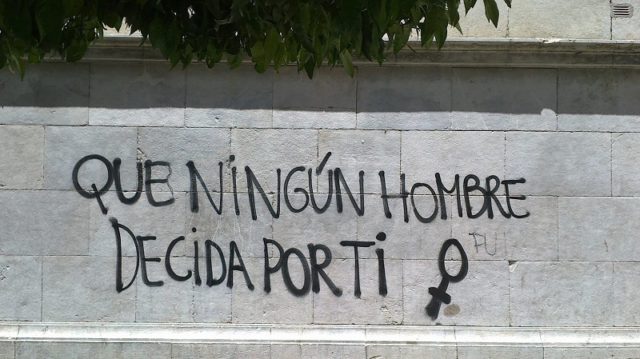 QUE NINGÚN HOMBRE
DECIDA POR TI ♀